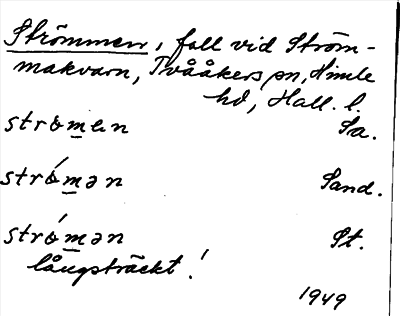 Strömmen, fall vid Ström-
makvarn, Tvååkers sn, Himle
hd, Hall. l.
strømen Sa.
strǿmən Sand.
strǿmən St.
långsträckt!
1949